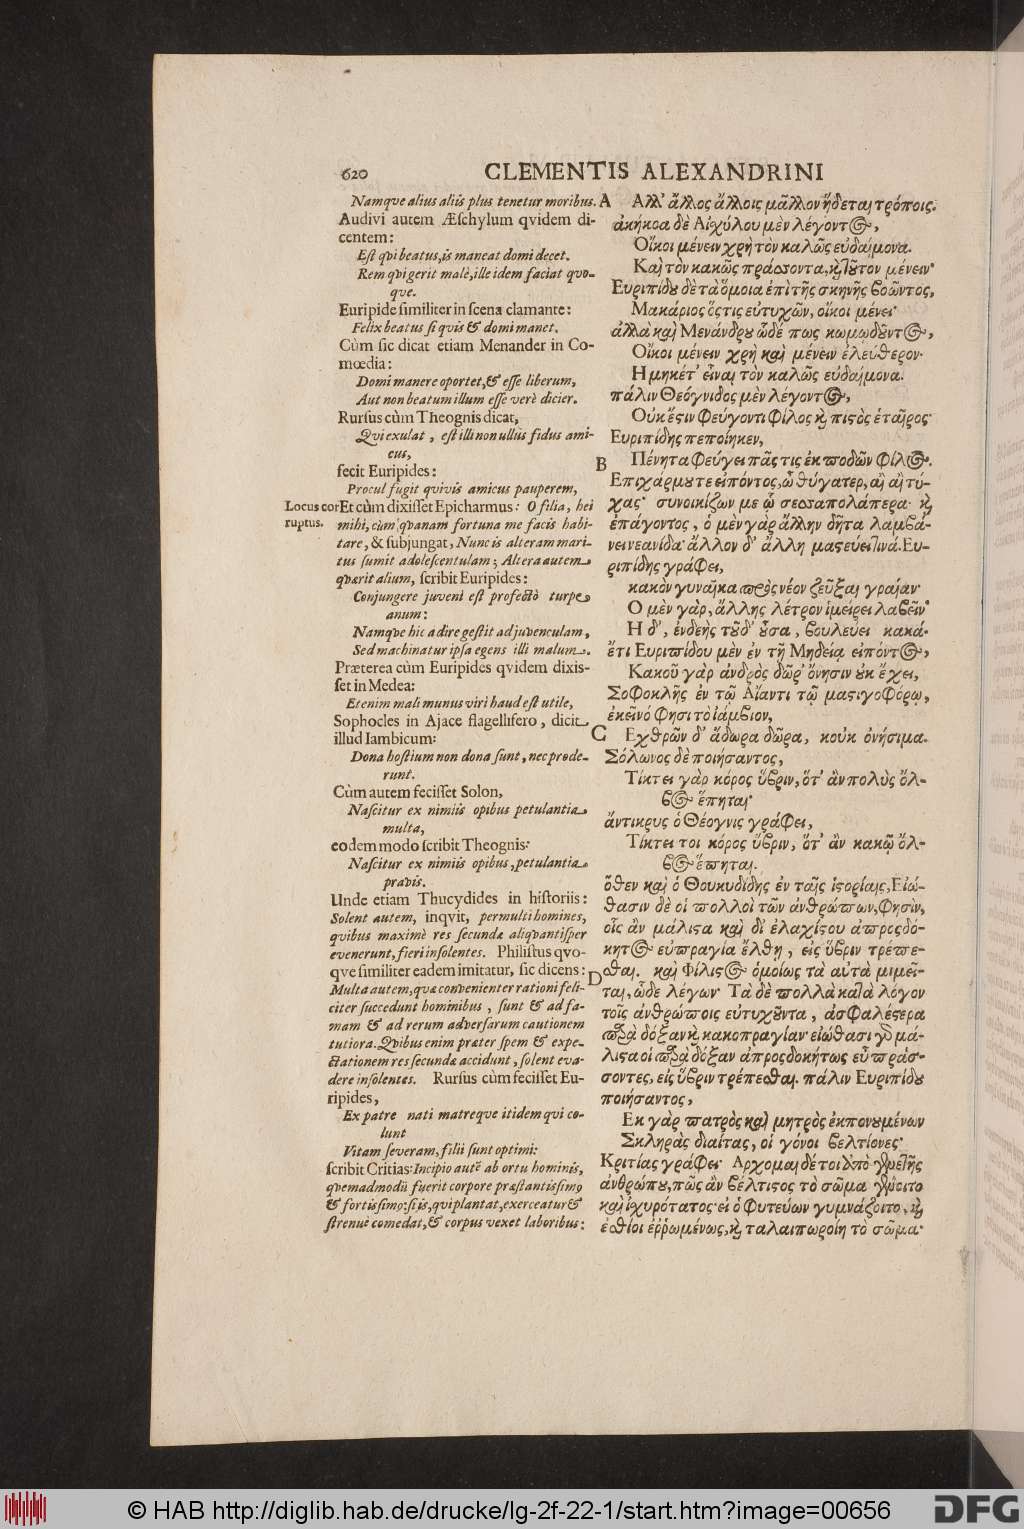 620
CLEMENTIS ALEXANDRINI
Namque alius aliis plus tenetur moribus.
Audivi autem Æſchylum qvidem di-
centem:
Eſt qvi beatus, is maneat domi decet.
Rem qvi gerit malè, ille idem faciat qvo-
que.
Euripide ſimiliter in ſcena clamante:
Felix beatus ſi quis & domi manet.
Cùm ſic dicat etiam Menander in Co-
mœdia:
Domi manere oportet, & eſſe liberum,
Aut non beatum illum eſſe verè dicier.
Rurſus cùm Theognis dicat,
Qvi exulat, eſt illi non ullus fidus ami-
cus,
fecit Euripides:
Procul fugit quivis amicus pauperem,
Locus cor
ruptus.
Et cùm dixiſſet Epicharmus: O filia, hei
mihi, cùm qvanam fortuna me facis habi-
tare, & ſubjungat, Nunc is alteram mari-
tus ſumit adoleſcentulam; Altera autem
qværit alium, ſcribit Euripides:
Conjungere juveni eſt profectò turpe
anum:
Namque hic adire geſtit ad juvenculam,
Sed machinatur ipſa egens illi malum.
Præterea cùm Euripides qvidem dixiſ-
ſet in Medea:
Etenim mali munus viri haud eſt utile,
Sophocles in Ajace flagellifero, dicit
illud Iambicum:
Dona hoſtium non dona ſunt, nec prode-
runt.
Cùm autem feciſſet Solon,
Naſcitur ex nimiis opibus petulantia
multa,
eodem modo ſcribit Theognis:
Naſcitur ex nimiis opibus, petulantia
pravis.
Unde etiam Thucydides in hiſtoriis:
Solent autem, inqvit, permulti homines,
quibus maximè res ſecundæ aliqvantiſper
evenerunt, fieri inſolentes. Philiſtus qvo-
qve ſimiliter eadem imitatur, ſic dicens:
Multa autem, quæ convenienter rationi feli-
citer ſuccedunt hominibus, ſunt & ad fa-
mam & ad rerum adverſarum cautionem
tutiora. Qvibus enim præter ſpem & expe-
ctationem res ſecundæ accidunt, ſolent eva-
dere inſolentes. Rurſus cùm feciſſet Eu-
ripides,
Ex patre nati matreque itidem qui co-
lunt
Vitam ſeveram, filii ſunt optimi:
ſcribit Critias: Incipio autē ab ortu hominis,
quemadmodū fuerit corpore præſtantiſſimo
& fortiſſimo: ſi is, qvi plantat, exerceatur &
ſtrenuè comedat, & corpus vexet laboribus:
A
Αλλ' ἄλλος ἄλλοις μᾶλλον ἥδεται τρόποις.
ἀκήκοα δὲ Αἰχύλου μὲν λέγοντος,
Οἴκοι μένειν χρὴ τὸν καλῶς εὐδαίμονα.
Καὶ τὸν κακῶς πράσσοντα, καὶ τοῦτον μένειν·
Ευριπίδου δὲ τὰ ὅμοια ἐπὶ τῆς σκηνῆς βοῶντος,
Μακάριος ὅςτις εὐτυχῶν, οἴκοι μένει·
ἀλλὰ καὶ Μενάνδρου ὧδέ πως κωμῳδοῦντος,
Οἴκοι μένειν χρὴ καὶ μένειν ἐλεύθερον·
Η μηκέτ' εἶναι τὸν καλῶς εὐδαίμονα.
πάλιν Θεόγνιδος μὲν λέγοντος,
Οὐκ ἔστιν φεύγοντι φίλος καὶ πιστὸς ἑταῖρος·
Ευριπίδης πεποίηκεν,
B
Πένητα φεύγει πᾶς τις ἐκποδῶν φίλος.
Επιχάρμου τε εἰπόντος, ὦ θύγατερ, αἲ αἲ τύ-
χας· συνοικίζων με ᾧ σεσαπολάπερα· καὶ
ἐπάγοντος, ὁ μὲν γὰρ ἄλλην δῆτα λαμβά-
νει νεανίδα· ἄλλον δ' ἄλλη μαστεύει τινά. Ευ-
ριπίδης γράφει,
κακὸν γυναῖκα πρὸς νέον ζεῦξαι γραίαν·
Ο μὲν γὰρ, ἄλλης λέτρον ἱμείρει λαβεῖν·
Η δ', ἐνδεὴς τοῦδ' οὖσα, βουλεύει κακά.
ἔτι Ευριπίδου μὲν ἐν τῇ Μηδείᾳ εἰπόντος,
Κακοῦ γὰρ ἀνδρὸς δῶρ' ὄνησιν οὐκ ἔχει,
Σοφοκλῆς ἐν τῷ Αἴαντι τῷ μαστιγοφόρῳ,
ἐκεῖνό φησι τὸ ἰάμβιον,
C
Εχθρῶν δ' ἄδωρα δῶρα, κοὐκ ὀνήσιμα.
Σόλωνος δὲ ποιήσαντος,
Τίκτει γὰρ κόρος ὕβριν, ὅτ' ἂν πολὺς ὄλ-
βος ἕπηται·
ἄντικρυς ὁ Θέογνις γράφει,
Τίκτει τοι κόρος ὕβριν, ὅτ' ἂν κακῷ ὄλ-
βος ἕπηται.
ὅθεν καὶ ὁ Θουκυδίδης ἐν ταῖς ἱστορίαις, Εἰώ-
θασιν δὲ οἱ πολλοὶ τῶν ἀνθρώπων, φησὶν,
οἷς ἂν μάλιστα καὶ δι' ἐλαχίστου ἀπροσδό-
κητος εὐπραγία ἔλθῃ, εἰς ὕβριν τρέπε-
D
σθαι. καὶ Φίλιστος ὁμοίως τὰ αὐτὰ μιμεῖ-
ται, ὧδε λέγων· Τὰ δὲ πολλὰ κατὰ λόγον
τοῖς ἀνθρώποις εὐτυχοῦντα, ἀσφαλέστερα
παρὰ δόξαν καὶ κακοπραγίαν· εἰώθασι γὰρ μά-
λιστα οἱ παρὰ δόξαν ἀπροσδοκήτως εὖ πράσ-
σοντες, εἰς ὕβριν τρέπεσθαι. πάλιν Ευριπίδου
ποιήσαντος,
Εκ γὰρ πατρὸς καὶ μητρὸς ἐκπονουμένων
Σκληρὰς διαίτας, οἱ γόνοι βελτίονες·
Κριτίας γράφει· Αρχομαι δέ τοι ἀπὸ γενετῆς
ἀνθρώπου, πῶς ἂν βέλτιστος τὸ σῶμα γένοιτο
καὶ ἰχυρότατος· εἰ ὁ φυτεύων γυμνάζοιτο, καὶ
ἐσθίοι ἐῤῥωμένως, καὶ ταλαιπωροίη τὸ σῶμα·
© HAB http://diglib.hab.de/drucke/lg-2f-22-1/start.htm?image=00656
DFG